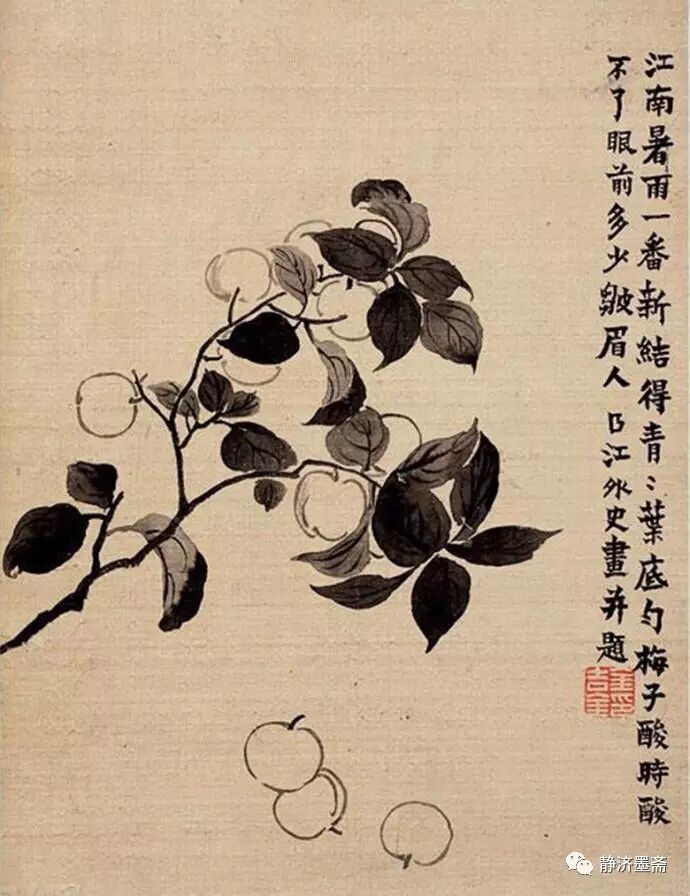 江南暑雨一番新結得青〻葉底勻梅子酸時酸
不了眼前多少皺眉人 曲江外史畫并題
静济墨斋